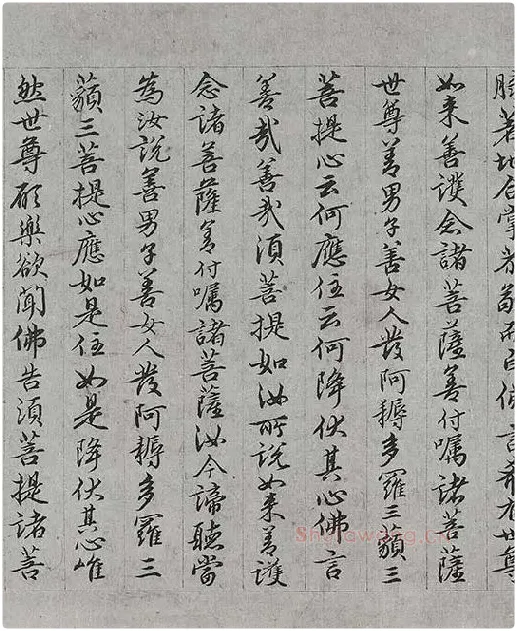 膝著地合掌恭敬而白佛言希有世尊
如来善護念諸菩薩善付嘱諸菩薩
世尊善男子善女人發阿耨多羅三藐三
菩提心云何應住云何降伏其心佛言
善哉善哉須菩提如汝所説如来善護
念諸菩薩善付嘱諸菩薩汝今諦聽當
為汝説善男子善女人發阿耨多羅三
藐三菩提心應如是住如是降伏其心唯
然世尊願樂欲聞佛告須菩提諸菩